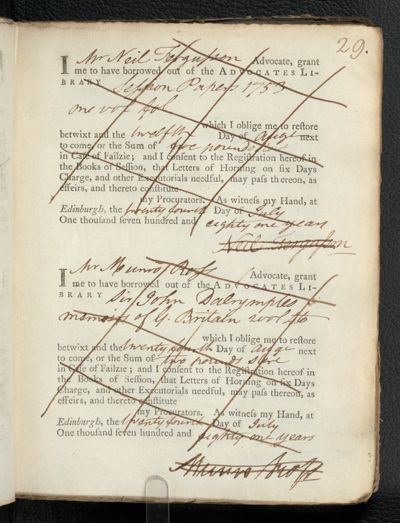 29.
I Mr Neil Ferguson Advocate, grant
me to have borrowed out of the ADVOCATES LI-
BRARY Session Papers 1753
one vol fol
which I oblige me to restore
betwixt and the twelfth Day of Augt next
to come, or the Sum of five pounds
in Case of Failzie; and I consent to the Registration hereof in
the Books of Session, that Letters of Horning on six Days
Charge, and other Executorials needful, may pass thereon, as
effeirs, and thereto constitute
my Procurators. As witness my Hand, at
Edinburgh, the twenty fourth Day of July
One thousand seven hundred and eighty one years
Neil Ferguson
I Mr Munro Ross Advocate, grant
me to have borrowed out of the ADVOCATES LI-
BRARY Sir John Dalrymples
memoirs of G. Britain 2 vol 4to
which I oblige me to restore
betwixt and the twenty fourth Day of Augt next
to come, or the Sum of two pounds Ster
in Case of Failzie; and I consent to the Registration hereof in
the Books of Session, that Letters of Horning on six Days
Charge, and other Executorials needful, may pass thereon, as
effeirs, and thereto constitute
my Procurators. As witness my Hand, at
Edinburgh, the twenty fourth Day of July
One thousand seven hundred and eighty one years
Munro Ross